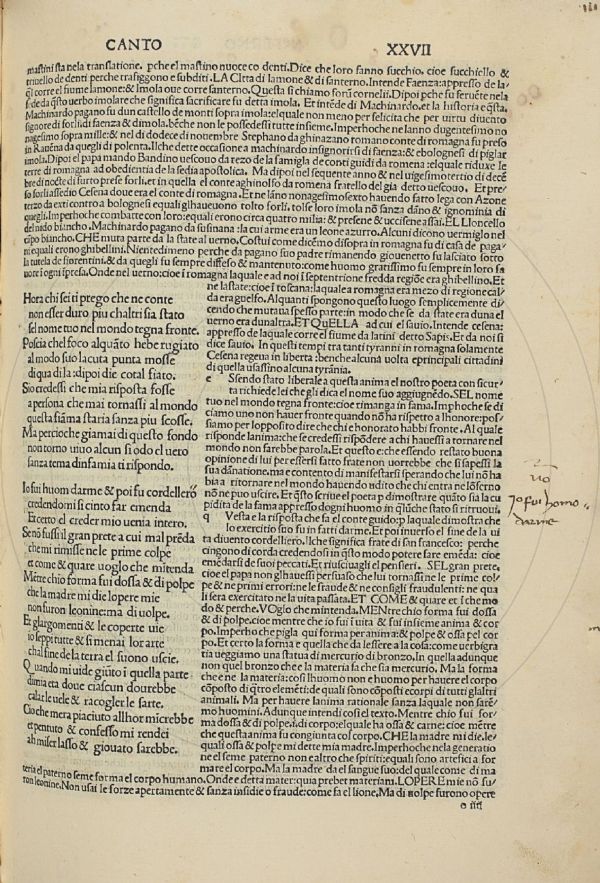 CANTO XXVII
mastini sta nela translatione. pche el mastino nuoce co denti. Dice che loro fanno succhio. cioe succhiello &
triuello de denti perche trafiggono e subditi. LA Citta di lamone & di santerno. Intende Faenza: appresso de la-
corre el fiume lamone: & Imola oue corre santerno. Questa si chiamo forũ cornelii. Dipoi pche fu
da questo uerbo imolare che significa sacrificare fu detta imola. Et intẽde di Machinardo. et la historia e
Machinardo pagano fu dun castello de monti sopra imola: elquale non meno per felicita che per uirtu diuento
signore di forli: di faenza & dimola: bẽche non le possedessi tutte insieme. Imperhoche ne lanno dugentesimo no
nagesimo sopra mille: & nel di dodece di nouembre Stephano da ghinazano romano conte di romagna fu preso
in Rauẽna da quegli di polenta. Ilche dette occasione a machinardo insignorirsi di faenza: & ebolognesi di piglar
imola. Dipoi el papa mando Bandino uescouo da rezo de la famigla de conti guidi da romena: elquale riduxe le
terre di romagna ad obedientia de la sedia apostolica. Ma dipoi nel sequente anno & nel uigesimotertio di decẽ
bre di nocte di furto prese forli. et in quella el conte aghinolfo da romena fratello del gia detto uescouo. Et pre-
so forli assedio Cesena doue era el conte di romagna. Et ne lãno nonagesimo sexto hauendo fatto lega con Azone
terzo da exti contro a bolognesi equali glhaueuono tolto forli. tolse loro imola nõ sanza dãno & ignominia di
quegli. Imperhoche combatte con loro: equali erono circa quatro milia: & presene & uccisene assai. EL LIoncello
del nido biancho. Machinardo pagano da susinana: la cui arme era un leone azurro. Alcuni dicono uermiglo nel
cãpo biancho. CHE muta parte da la state al uerno. Costui come dicẽmo disopra in romagna fu di casa de paga
ni equali erono ghibellini. Nientedimeno perche da pagano suo padre rimanendo giouenetto fu lasciato sotto
la tutela de fiorentini. & da quegli fu sempre diffeso & mantenuto: come huomo gratissimo fu sempre in loro fa
uore i ogni ipresa. Onde nel uerno: cioe i romagna laquale e ad noi i septentrione fredda regione era ghibellino. Et
ne la state: cioe i toscana: laquale a romagna era mezo di regione cal-
da era guelfo. Alquanti spongono questo luogo semplicemente di-
cendo che mutaua spesso parte: in modo che se da state era duna el
uerno era dunaltra. ET QuELLA ad cui el sauio. Intende cesena:
appresso de laquale corre el fiume da latini detto Sapis. Et da noi si
dice sauio. In questi tempi tra tanti tyranni in romagna solamente
Cesena regeua in liberta: benche alcuna uolta eprincipali cittadini
di quella usassino alcuna tyrãnia.
Hora chi sei ti prego che ne conte
non esser duro piu chaltri sia stato
sel nome tuo nel mondo tegna fronte.
Poscia chel foco alquãto hebe rugiato
al modo suo lacuta punta mosse
di qua di la: dipoi die cotal fiato.
Sio credessi che mia risposta fosse
a persona che mai tornassi al mondo
questa fiãma staria sanza piu scosse.
Ma percioche giamai di questo fondo
non torno uiuo alcun si odo el uero
sanza tema dinfamia ti rispondo.
Io fui huom darme & poi fu cordellero
credendomi si cinto far emenda
Et certo el creder mio uenia intero.
Se nõ fussi il gran prete a cui mal prẽda
che mi rimisse ne le prime colpe
et come & quare uoglo che mitenda
Mẽtre chio forma fui dossa & di polpe
che la madre mi die lopere mie
non furon leonine: ma di uolpe.
Et glargomenti & le coperte uie
io seppi tutte & si menai lor arte
chal fine de la terra el suono uscie.
Quando mi uide giũto i quella parte
dimia eta doue ciascun dourebbe
calar le uele & racogler le sarte.
Cio che mera piaciuto allhor mĩcrebbe
et pentuto & confesso mi rendei
ahi miser lasso & giouato sarebbe.
e Ssendo stato liberale a questa anima el nostro poeta con sicur-
ta richiede lei che gli dica el nome suo aggiugnẽdo. SEL nome
tuo nel mondo tegna fronte: cioe rimanga in fama. Imphoche se di-
ciamo uno non hauer fronte quando nõ ha rispetto a lhonore: pos-
siamo per lopposito dire che chi e honorato habbi fronte. Al quale
risponde lanima: che se credessi rispõdere a chi hauessi a tornare nel
mondo non sarebbe parola. Et questo e: che essendo restato buona
opinione di lui per essersi fatto frate non uorrebbe che si sapessi la
sua dãnatione. ma e contento di manifestarsi sperando che lui nõ ha
bia a ritornare nel mondo hauendo udito che chi entra ne lonferno
nõ ne puo uscire. Et questo scriue el poeta p dimostrare quãto sia la cu
pidita de la fama appresso dogni huomo in stato si ritruoui.
q Vesta e la risposta che fa el conte guido: p laquale dimostra che
lo exercitio suo fu in fatti darme. Et poi inuerso el fine de la ui
ta diuento cordelliero. Ilche significa frate di san francesco: perche
cingono di corda credendo in questo modo potere fare emẽda: cioe
emẽdarsi de suoi peccati. Et riusciuagli el pensieri. SEL gran prete.
cioe el papa non glhauessi persuaso che lui tornassi ne le prime col-
pe & ne primi errori: ne le fraude & ne consigli fraudulenti: ne qua
li sera exercitato ne la uita passata. ET COME & quare et ĩ che mo
do & perche. VOglo che mintenda. MENtre chio forma fui dossa
& di polpe. cioe mentre che io fui ĩ uita & fui insieme anima & cor
po. Imperho che pigla qui forma per anima: & polpe & ossa pel cor
po. Et certo la forma e quella che da lessere a la cosa: come uerbigra
tia ueggiamo una statua di mercurio di bronzo. In quella adunque
non quel bronzo che e la materia fa che sia mercurio. Ma la forma
che e ne la materia: cosi lhuomo non e huomo per hauere el corpo
cõposto di quatro elemẽti: de quali sono cõposti ecorpi di tutti glaltri
animali. Ma per hauere lanima rationale sanza laquale non sarẽ-
mo huomini. Adunque intendi cosi el texto. Mentre chio fui for
ma dossa & di polpe. i. di corpo: elquale ha ossa & carne: cioe mẽtre
che questa anima fu congiunta col corpo. CHE la madre mi die. le-
quali ossa & polpe mi dette mia madre. Imperhoche ne la generatio
ne el seme paterno non e altro che spiriti: equali sono artefici a for
mare el corpo. Ma la madre da el sangue suo: del quale come di ma
teria el paterno seme forma el corpo humano. Onde e detta mater: quia prebet materiam. LOPERE mie nõ fu-
ron leonine. Non usai le forze apertamente & sanza insidie o fraude: come fa el lione. Ma di uolpe furono opere
o iiii
Jo fui homo
darme